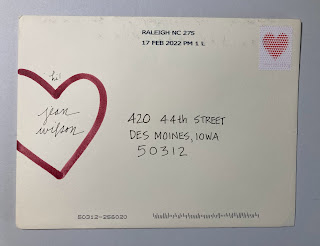 RALEIGH NC 275
17 FEB 2022 PM 1 L
hi!
jean
wilson
420 44th STREET
DES MOINES, IOWA
50312
50312-256020